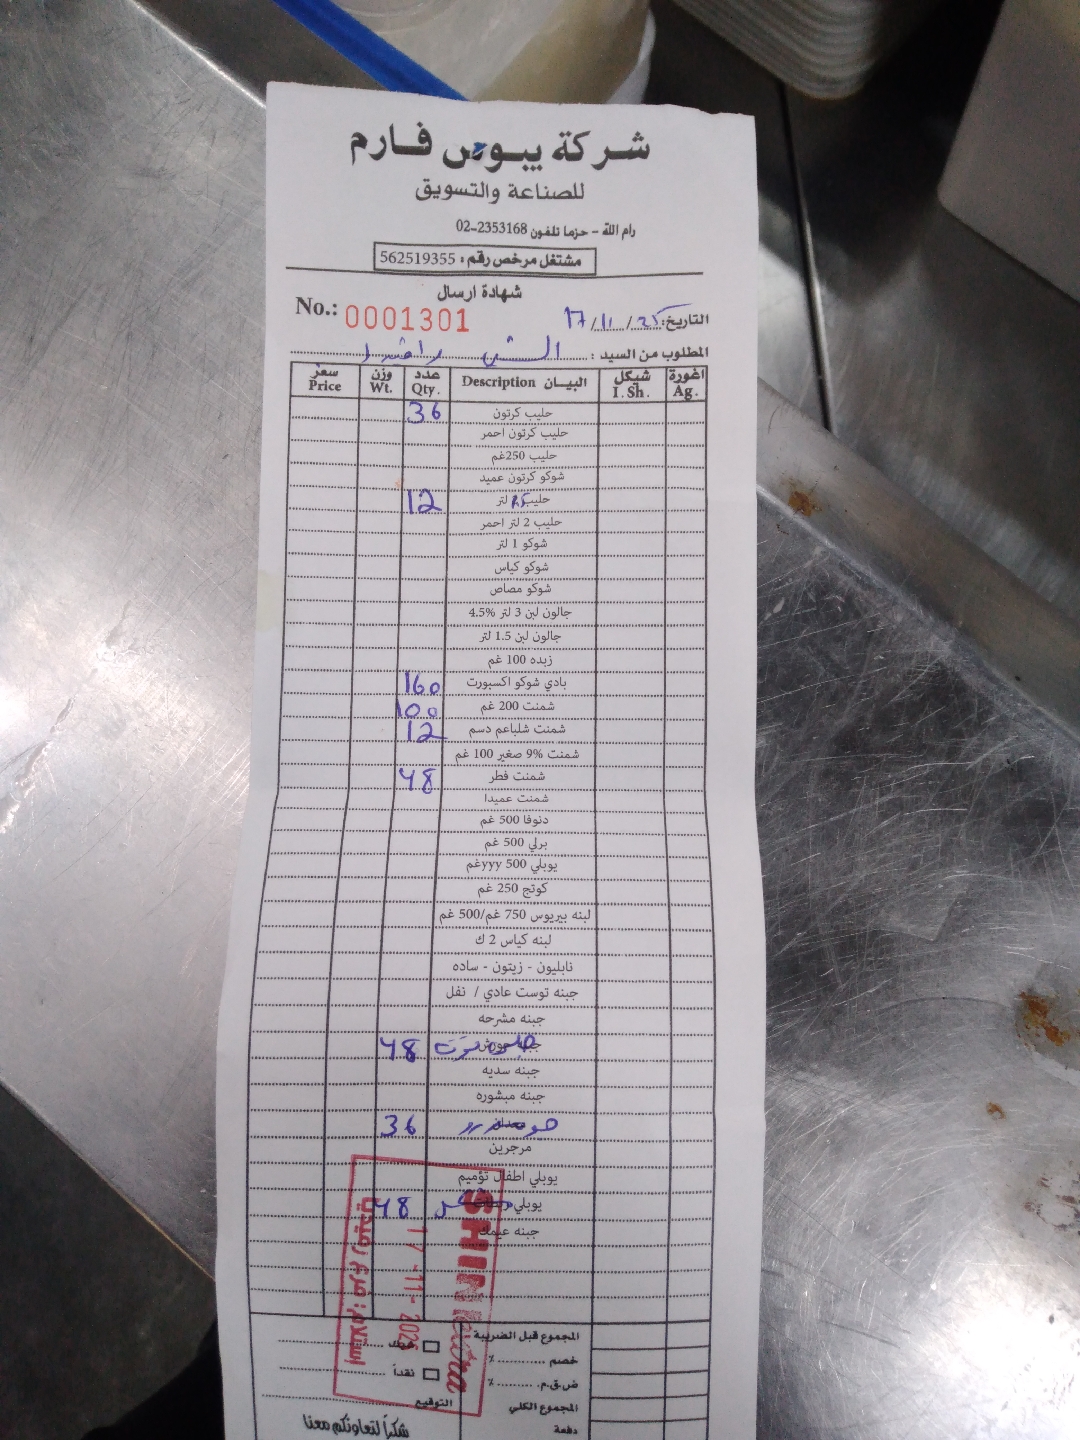 شركة يبوس فارم
للصناعة والتسويق
رام الله - حزما تلفون 02-2353168
مشتغل مرخص رقم : 562519355
شهادة ارسال
No.: 0001301
التاريخ: 17/11/25
المطلوب من السيد :
سعر Price وزن Wt. عدد Qty. البيـان Description شيكل I.Sh. اغورة Ag.
حليب كرتون 36
حليب كرتون احمر
حليب 250غم
شوكو كرتون عميد
حليب لتر 12
حليب 2 لتر احمر
شوكو 1 لتر
شوكو كياس
شوكو مصاص
جالون لبن 3 لتر 4.5%
جالون لبن 1.5 لتر
زبده 100 غم
بادي شوكو اكسبورت 160
شمنت 200 غم 100
شمنت شلباعم دسم 12
شمنت 9% صغير 100 غم
شمنت فطر 48
شمنت عميدا
دنوفا 500 غم
برلي 500 غم
يوبلي 500 yyyغم
كوتج 250 غم
لبنه بيريوس 750 غم/500 غم
لبنه كياس 2 ك
نابليون - زيتون - ساده
جبنه توست عادي / نفل
جبنه مشرحه
48
جبنه سديه
جبنه مبشوره
36
مرجرين
يوبلي اطفال تؤميم
يوبلي 48
جبنه عيمك
SHINI Extra
17-11-2025
المجموع قبل الضريبة
خصم ........... %
ض.ق.م. ........... %
المجموع الكلي
دفعة
نقداً
التوقيع
شكراً لتعاونكم معنا